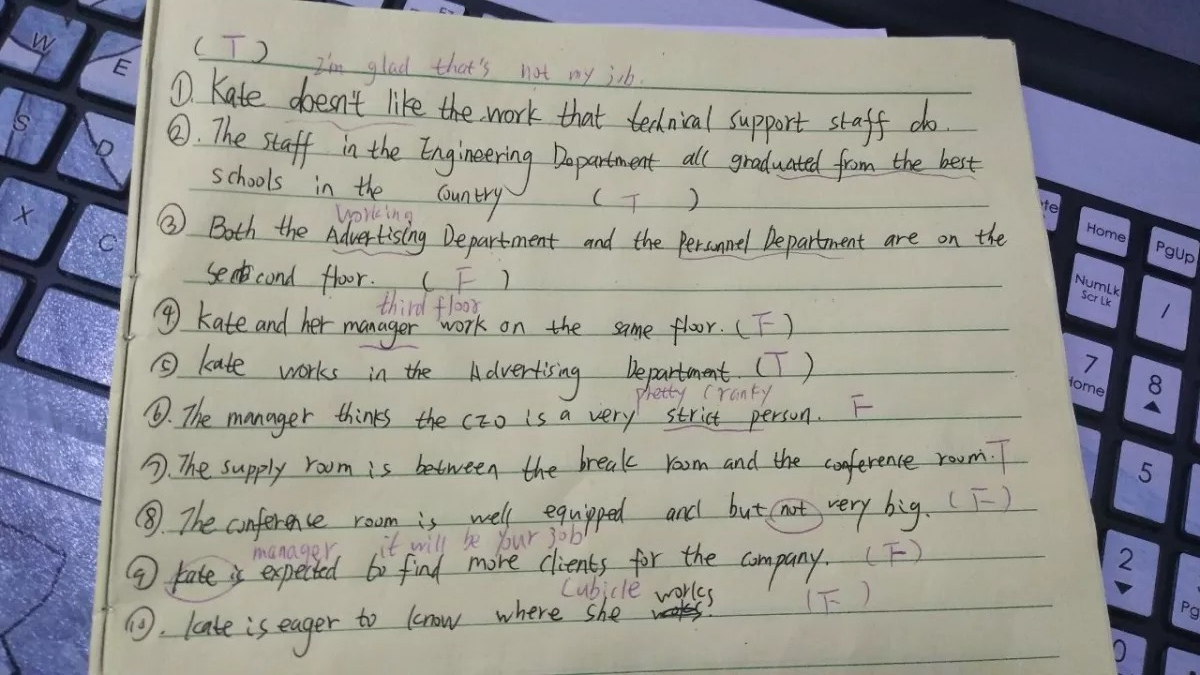 ( T )
I'm glad that's not my job.
①. Kate doesn't like the work that technical support staff do.
②. The staff in the Engineering Department all graduated from the best
schools in the country ( T )
working
③ Both the Advertising Department and the Personnel Department are on the
second floor. ( F )
third floor
④ Kate and her manager work on the same floor. ( F )
⑤ Kate works in the Advertising Department. ( T )
pretty cranky
⑥. The manager thinks the CEO is a very strict person. F
⑦. The supply room is between the break room and the conference room. T
⑧. The conference room is well equipped and but not very big. ( F )
manager it will be your job
⑨ Kate is expected to find more clients for the company. ( F )
Cubicle works
⑩. Kate is eager to know where she ( F )
W
E
S
D
X
C
Home
PgUp
NumLk
Scr Lk
/
7
Home
8
5
2
0
Pg